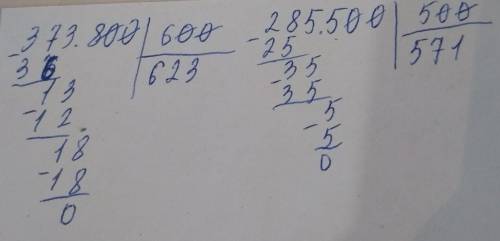 -373.800 | 600
36 | 623
-13
-12
18
-18
0
-285.500 | 500
25 | 571
-35
-35
5
-5
0